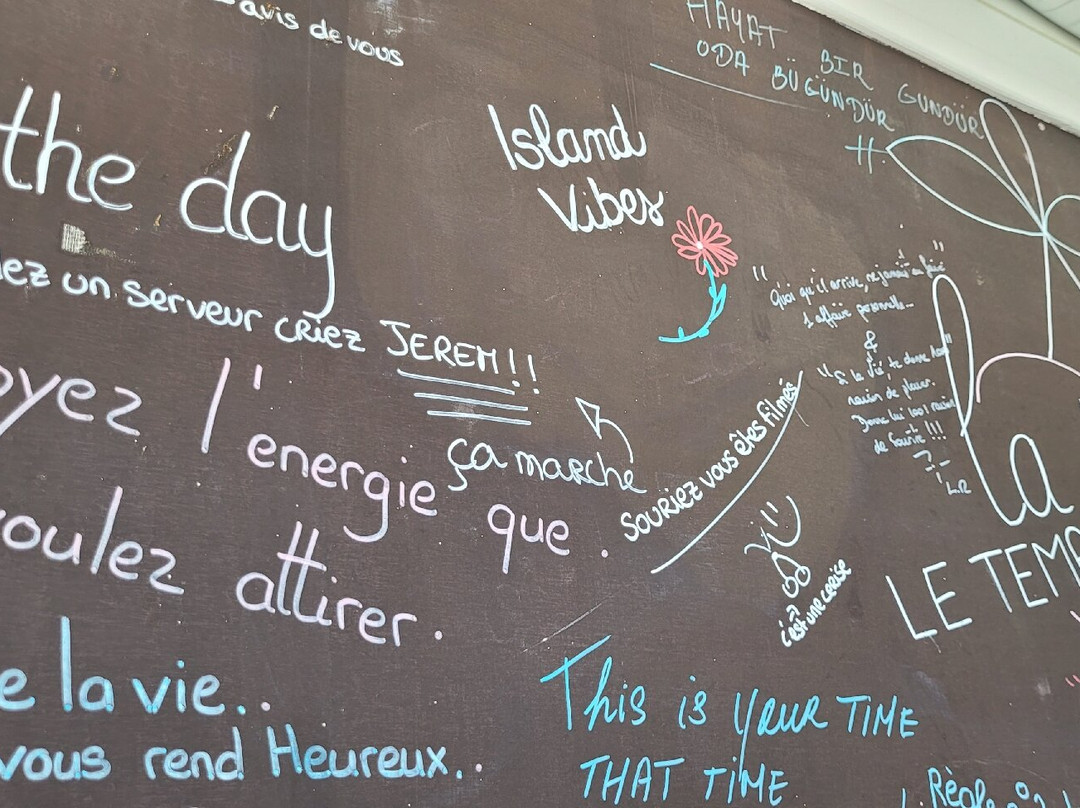 avis de vous
HAYAT BIR GUNDÜR
ODA BÜGÜNDÜR
the day
Island
Vibes
ez un serveur criez JEREM!!
ça marche
oyez l'energie que.
oulez attirer.
e la vie..
vous rend Heureux..
souriez vous êtes filmés
c'est une cerise
"Quoi qu'il arrive, ne jamais en faire
1 affaire personnelle..."
&
"Si la vie te donne 1001
raison de pleurer.
Donne lui 1001 raison
de sourire !!!
L.R
la
LE TEMP
This is your TIME
THAT TIME